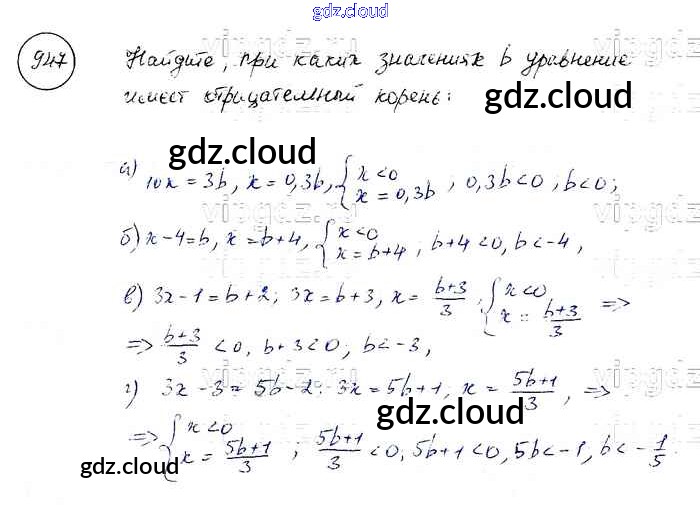 gdz.cloud
947 Найдите, при каких значениях b уравнение
имеет отрицательный корень:
gdz.cloud
gdz.cloud
а) 10x = 3b, x = 0,3b, { x < 0 x = 0,3b , 0,3b < 0, b < 0;
б) x - 4 = b, x = b + 4, { x < 0 x = b + 4 ; b + 4 < 0, b < -4,
в) 3x - 1 = b + 2; 3x = b + 3, x = (b+3)/3 ; { x < 0 x = (b+3)/3 =>
=> (b+3)/3 < 0, b + 3 < 0; b < -3,
г) 3x - 3 = 5b - 2; 3x = 5b + 1; x = (5b+1)/3, =>
gdz.cloud
=> { x < 0 x = (5b+1)/3 ; (5b+1)/3 < 0, 5b + 1 < 0, 5b < -1, b < -1/5.
gdz.cloud